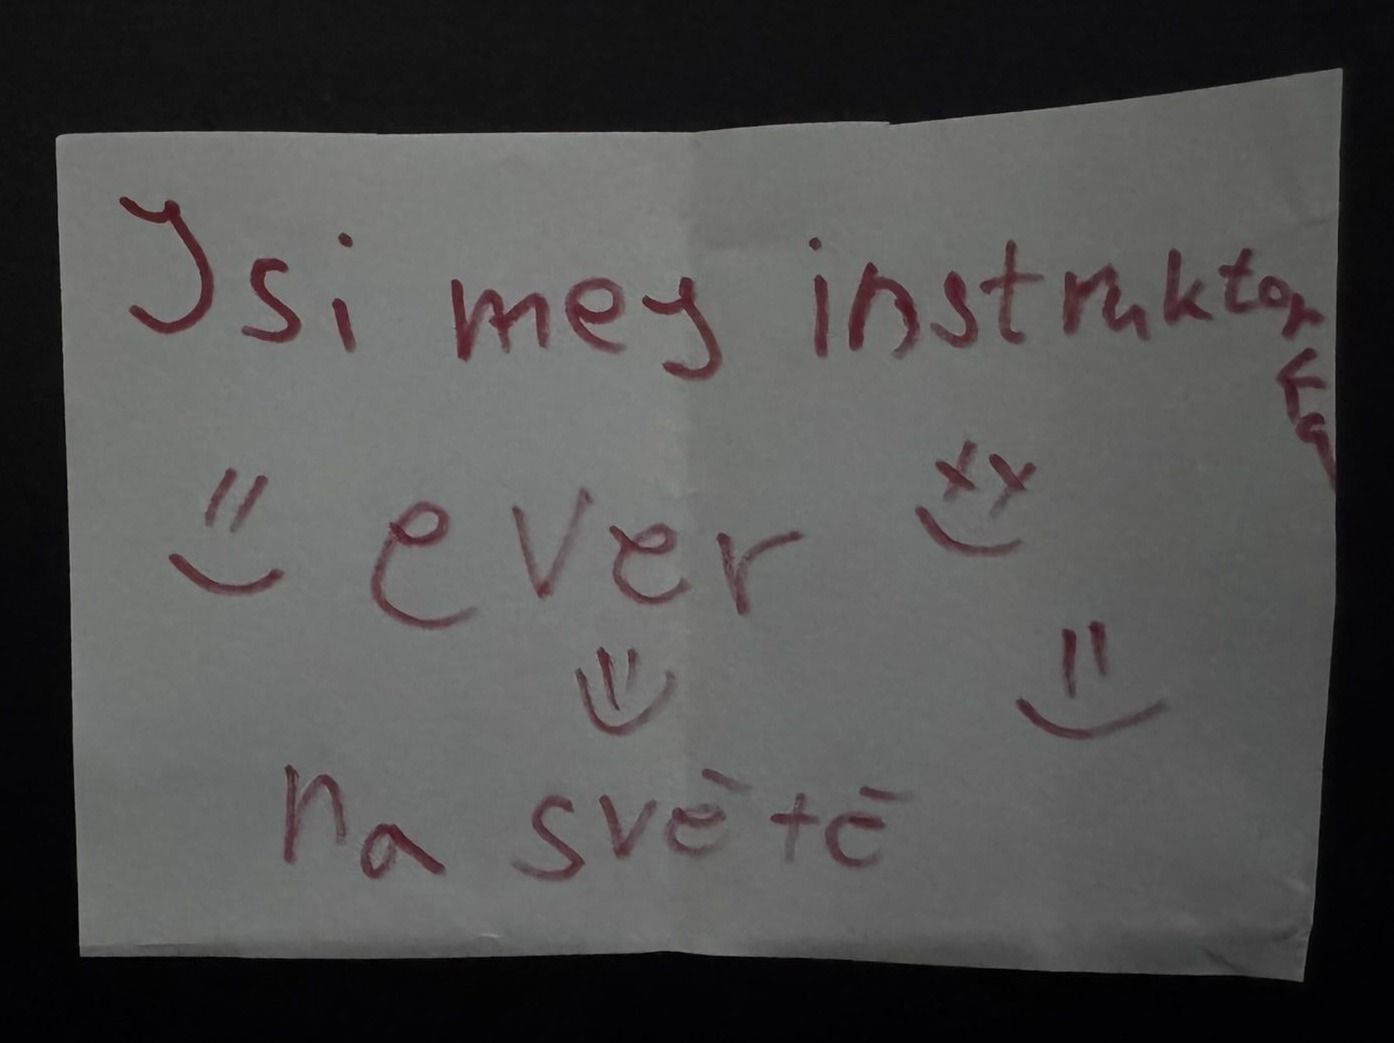 Jsi mey instruktor
ka
ever
na světě